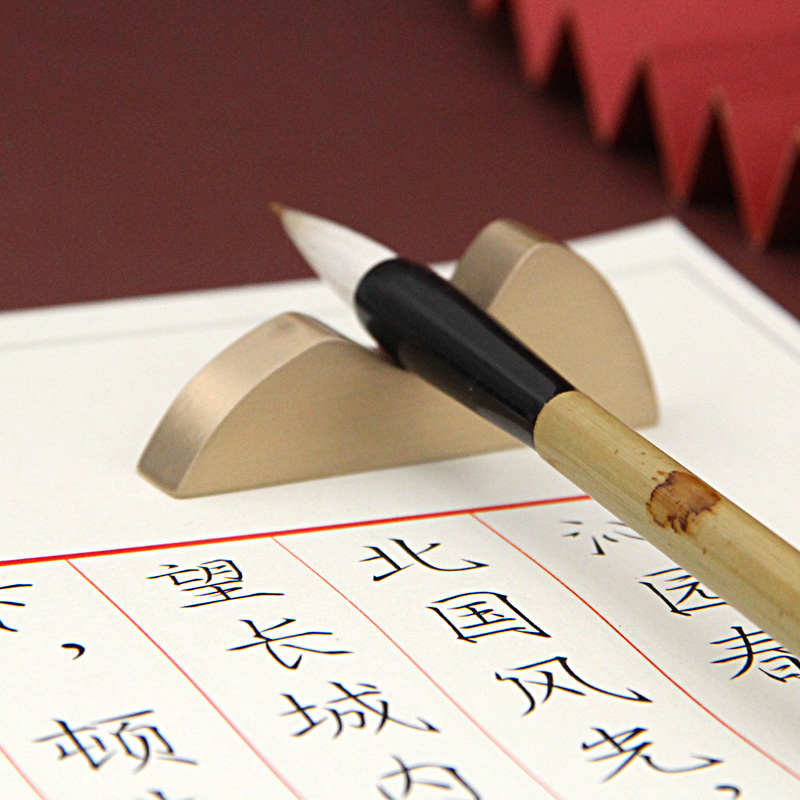 沁园春
北国风光，
望长城内
，顿